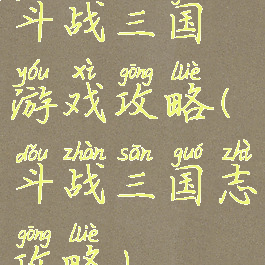 斗战三国
yóu xì gōng lüè
游戏攻略(
dǒu zhàn sān guó zhì
斗战三国志
gōng lüè
攻略)